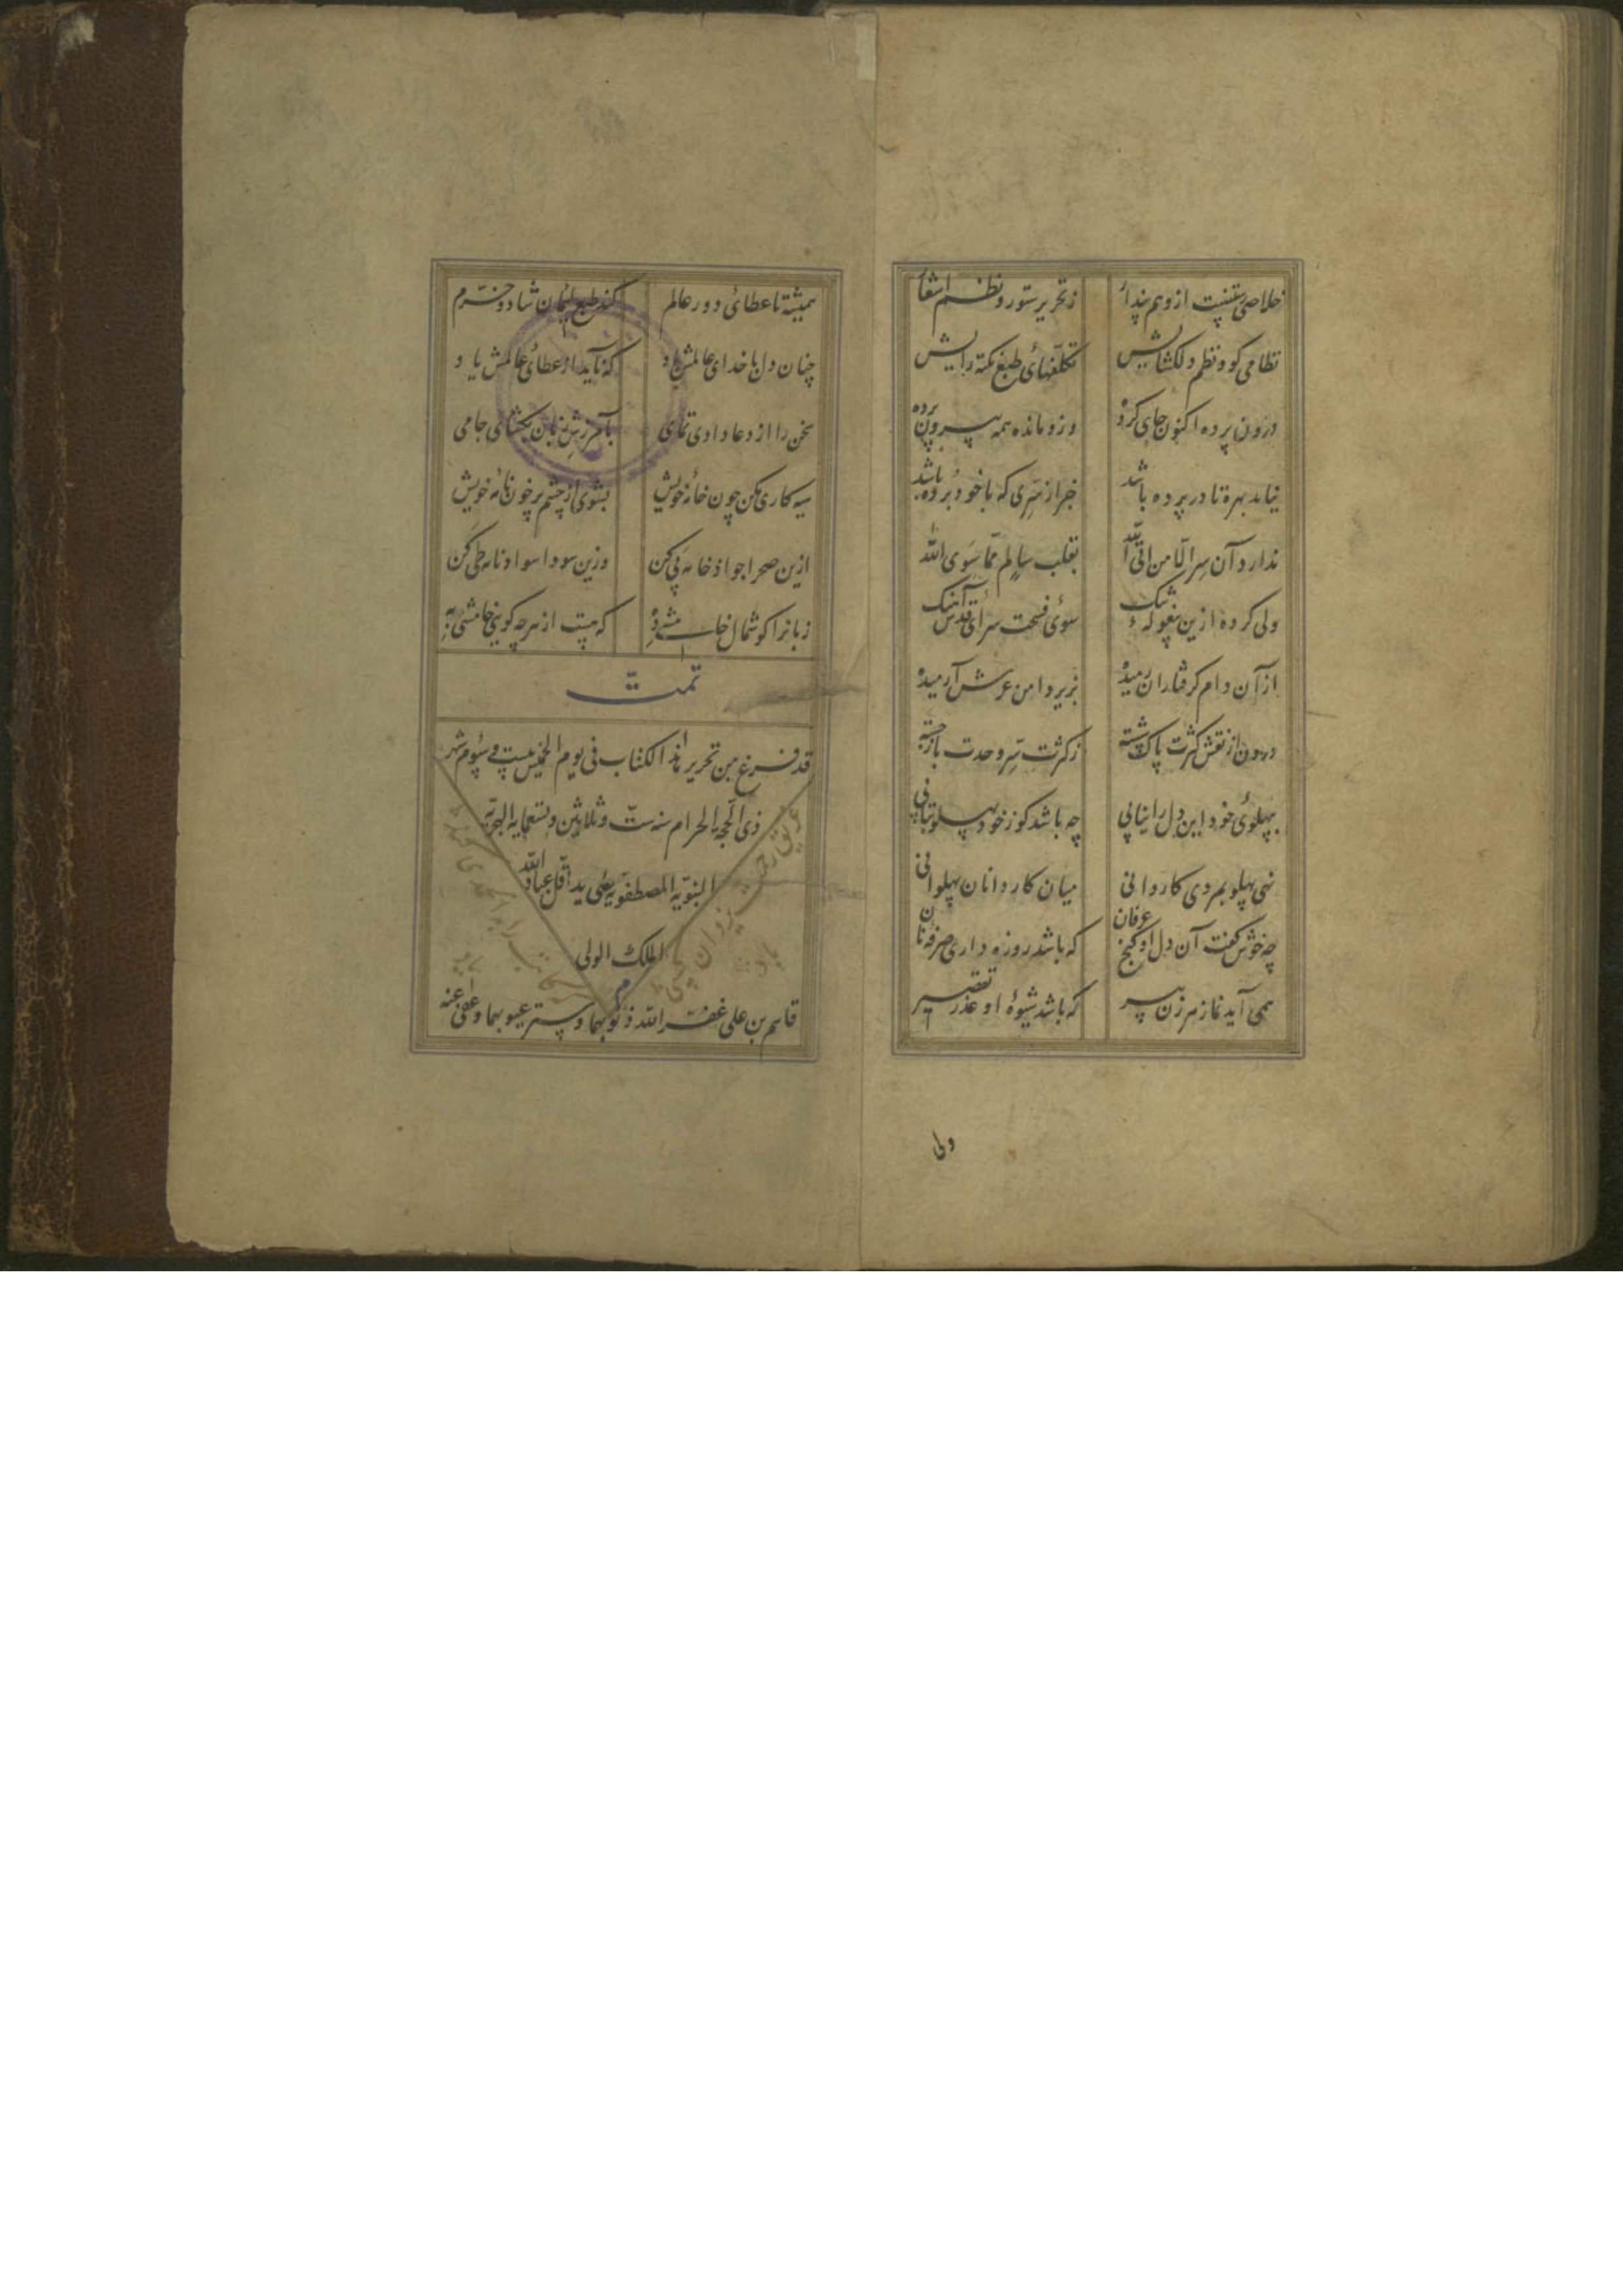 خلاصی نیست از وهم پندار ز تحریر ستور و نظم اشعار
نظامی کو و نظم دلکشایش تکلفهای طبع نکته زایش
درون پرده اکنون جای کرده وزو مانده همه بیرون پرده
نیابد بهره تا در پرده باشد جز از سری که با خود برده باشد
ندارد آن سر الا من اتی الله بقلب سالم عما سوی الله
ولی کرده ازین بیغوله تنک سوی فسحت سرای قدس آهنک
از آن دام گرفتاران رمیده بزیر دامن عرش آرمیده
درون از نقش کثرت پاک شسته ز کثرت سر وحدت باز جسته
بپهلوی خود این دل را نیابی چه باشد کز خود پهلو بتابی
نهی پهلو بمردی کاردانی میان کاردانان پهلوانی
چه خوش کفت آن دل او کنج عرفان که باشد روزه داری صرفه نان
همی آید نماز هر زن پیر که باشد شیوه او عذر تقصیر
ولی
همیشه تا عطای دور عالم کند طبع لئیمان شاد و خرم
چنان دل با خدای عالمش باد که ناید از عطای عالمش یاد
سخن را از دعا دادی تمامی بآمرزش زبان بکشای جامی
سیه کاری مکن چون خامه خویش بشوی از چشم پر خون نامه خویش
ازین صحرا جواد خامه پی کن وزین سودا سواد نامه طی کن
زبانرا کوشمال خامشی ده که هست از هرچه کویی خامشی به
تمت
قد فرغ من تحریر هذا الکتاب فی یوم الخمیس بیست و سیوم شهر
ذی الحجه الحرام سنه ست و ثلاثین و تسعمایه الهجریه
النبویه المصطفویه علی ید اقل عباد الله
الملک الولی
م
قاسم بن علی غفر الله ذنوبهما و ستر عیوبهما و عفی عنه
غریق رحمت یزدان کسی باد
که کاتب را به الحمدی کند یاد